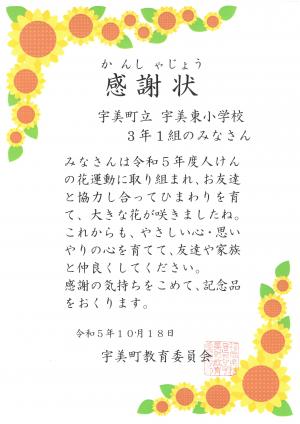 かんしゃじょう
感謝状
宇美町立 宇美東小学校
３年１組のみなさん
みなさんは令和５年度人けん
の花運動に取り組まれ、お友達
と協力し合ってひまわりを育
て、大きな花が咲きましたね。
これからも、やさしい心・思い
やりの心を育てて、友達や家族
と仲良くしてください。
感謝の気持ちをこめて、記念品
をおくります。
令和５年１０月１８日
宇美町教育委員会